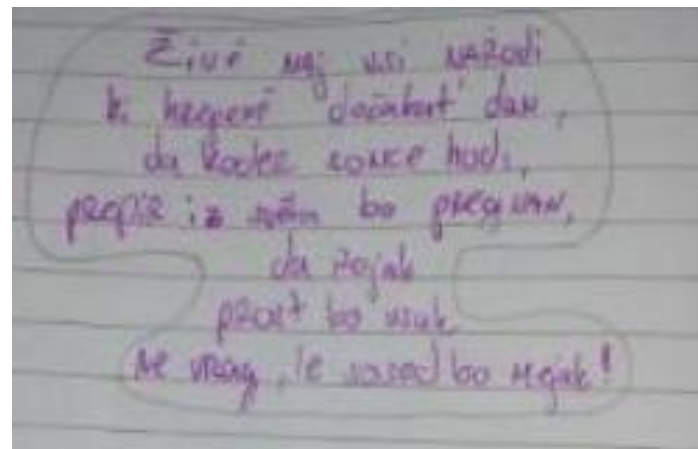 Živé naj vsi narodi
ki hrepené dočakat' dan,
da koder sonce hodi,
prepir iz svéta bo pregnan,
da rojak
prost bo vsak
ne vrag, le sosed bo mejak!